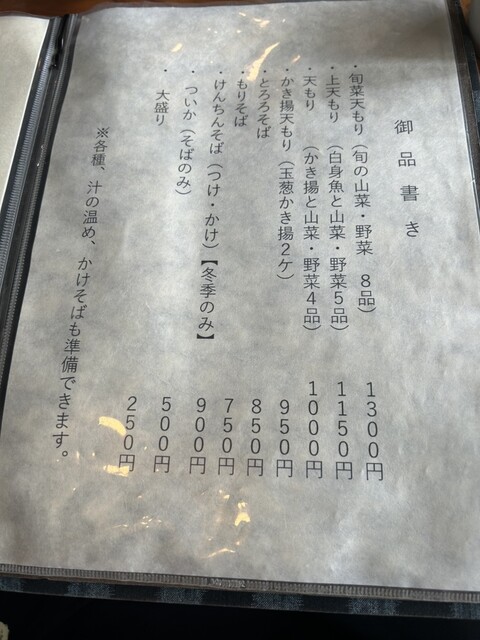 御品書き
・旬菜天もり（旬の山菜・野菜　８品） １３００円
・上天もり（白身魚と山菜・野菜５品） １１５０円
・天もり（かき揚と山菜・野菜４品） １０００円
・かき揚天もり（玉葱かき揚２ケ） ９５０円
・とろろそば ８５０円
・もりそば ７５０円
・けんちんそば（つけ・かけ）【冬季のみ】 ９００円
・ついか（そばのみ） ５００円
・大盛り ２５０円
※各種、汁の温め、かけそばも準備できます。